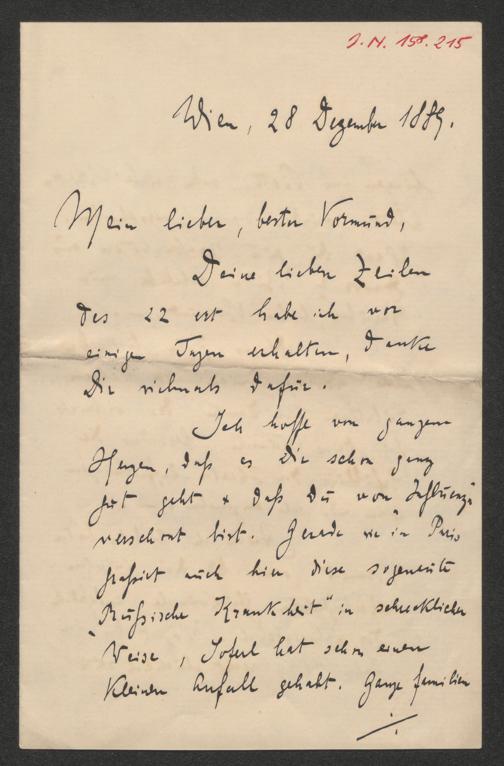 J. N. 158.215
Wien, 28 Dezember 1889.
Mein lieber, bester Vormund,
Deine lieben Zeilen
des 22 ert habe ich vor
einigen Tagen erhalten, danke
Dir vielmals dafür.
Ich hoffe von ganzem
Herzen, daß es Dir schon ganz
gut geht & daß Du von Influenza
verschont bist. Gerade wie in Paris
graßirt auch hier diese sogenannte
"Rußische Krankheit" in schrecklicher
Weise, hat schon einen
kleinen Anfall gehabt. Ganze Familien